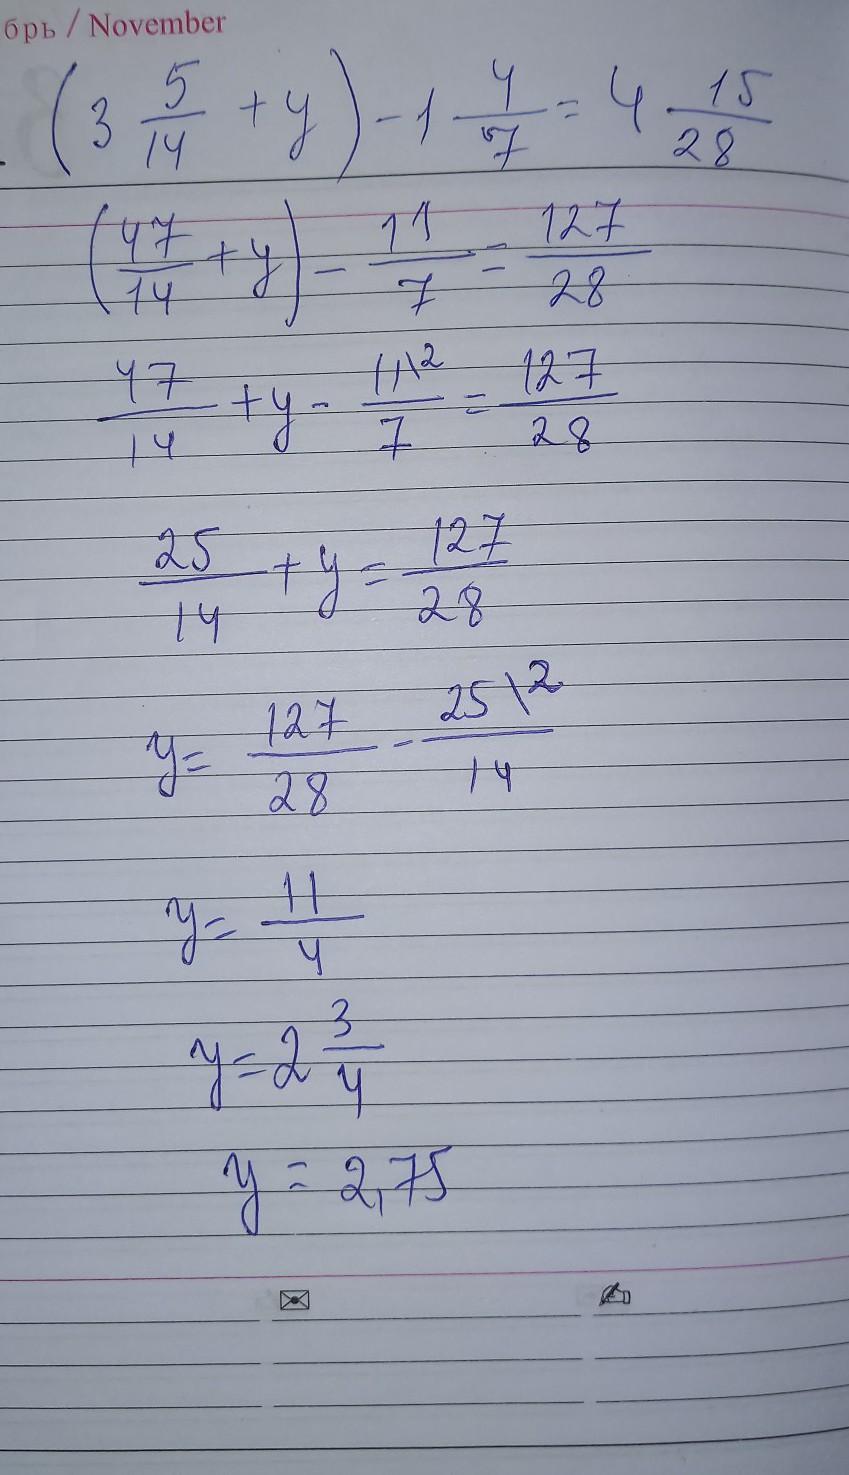 брь / November
(3 5/14 + y) - 1 4/7 = 4 15/28
(47/14 + y) - 11/7 = 127/28
47/14 + y - 11\2/7 = 127/28
25/14 + y = 127/28
y = 127/28 - 25\2/14
y = 11/4
y = 2 3/4
y = 2,75